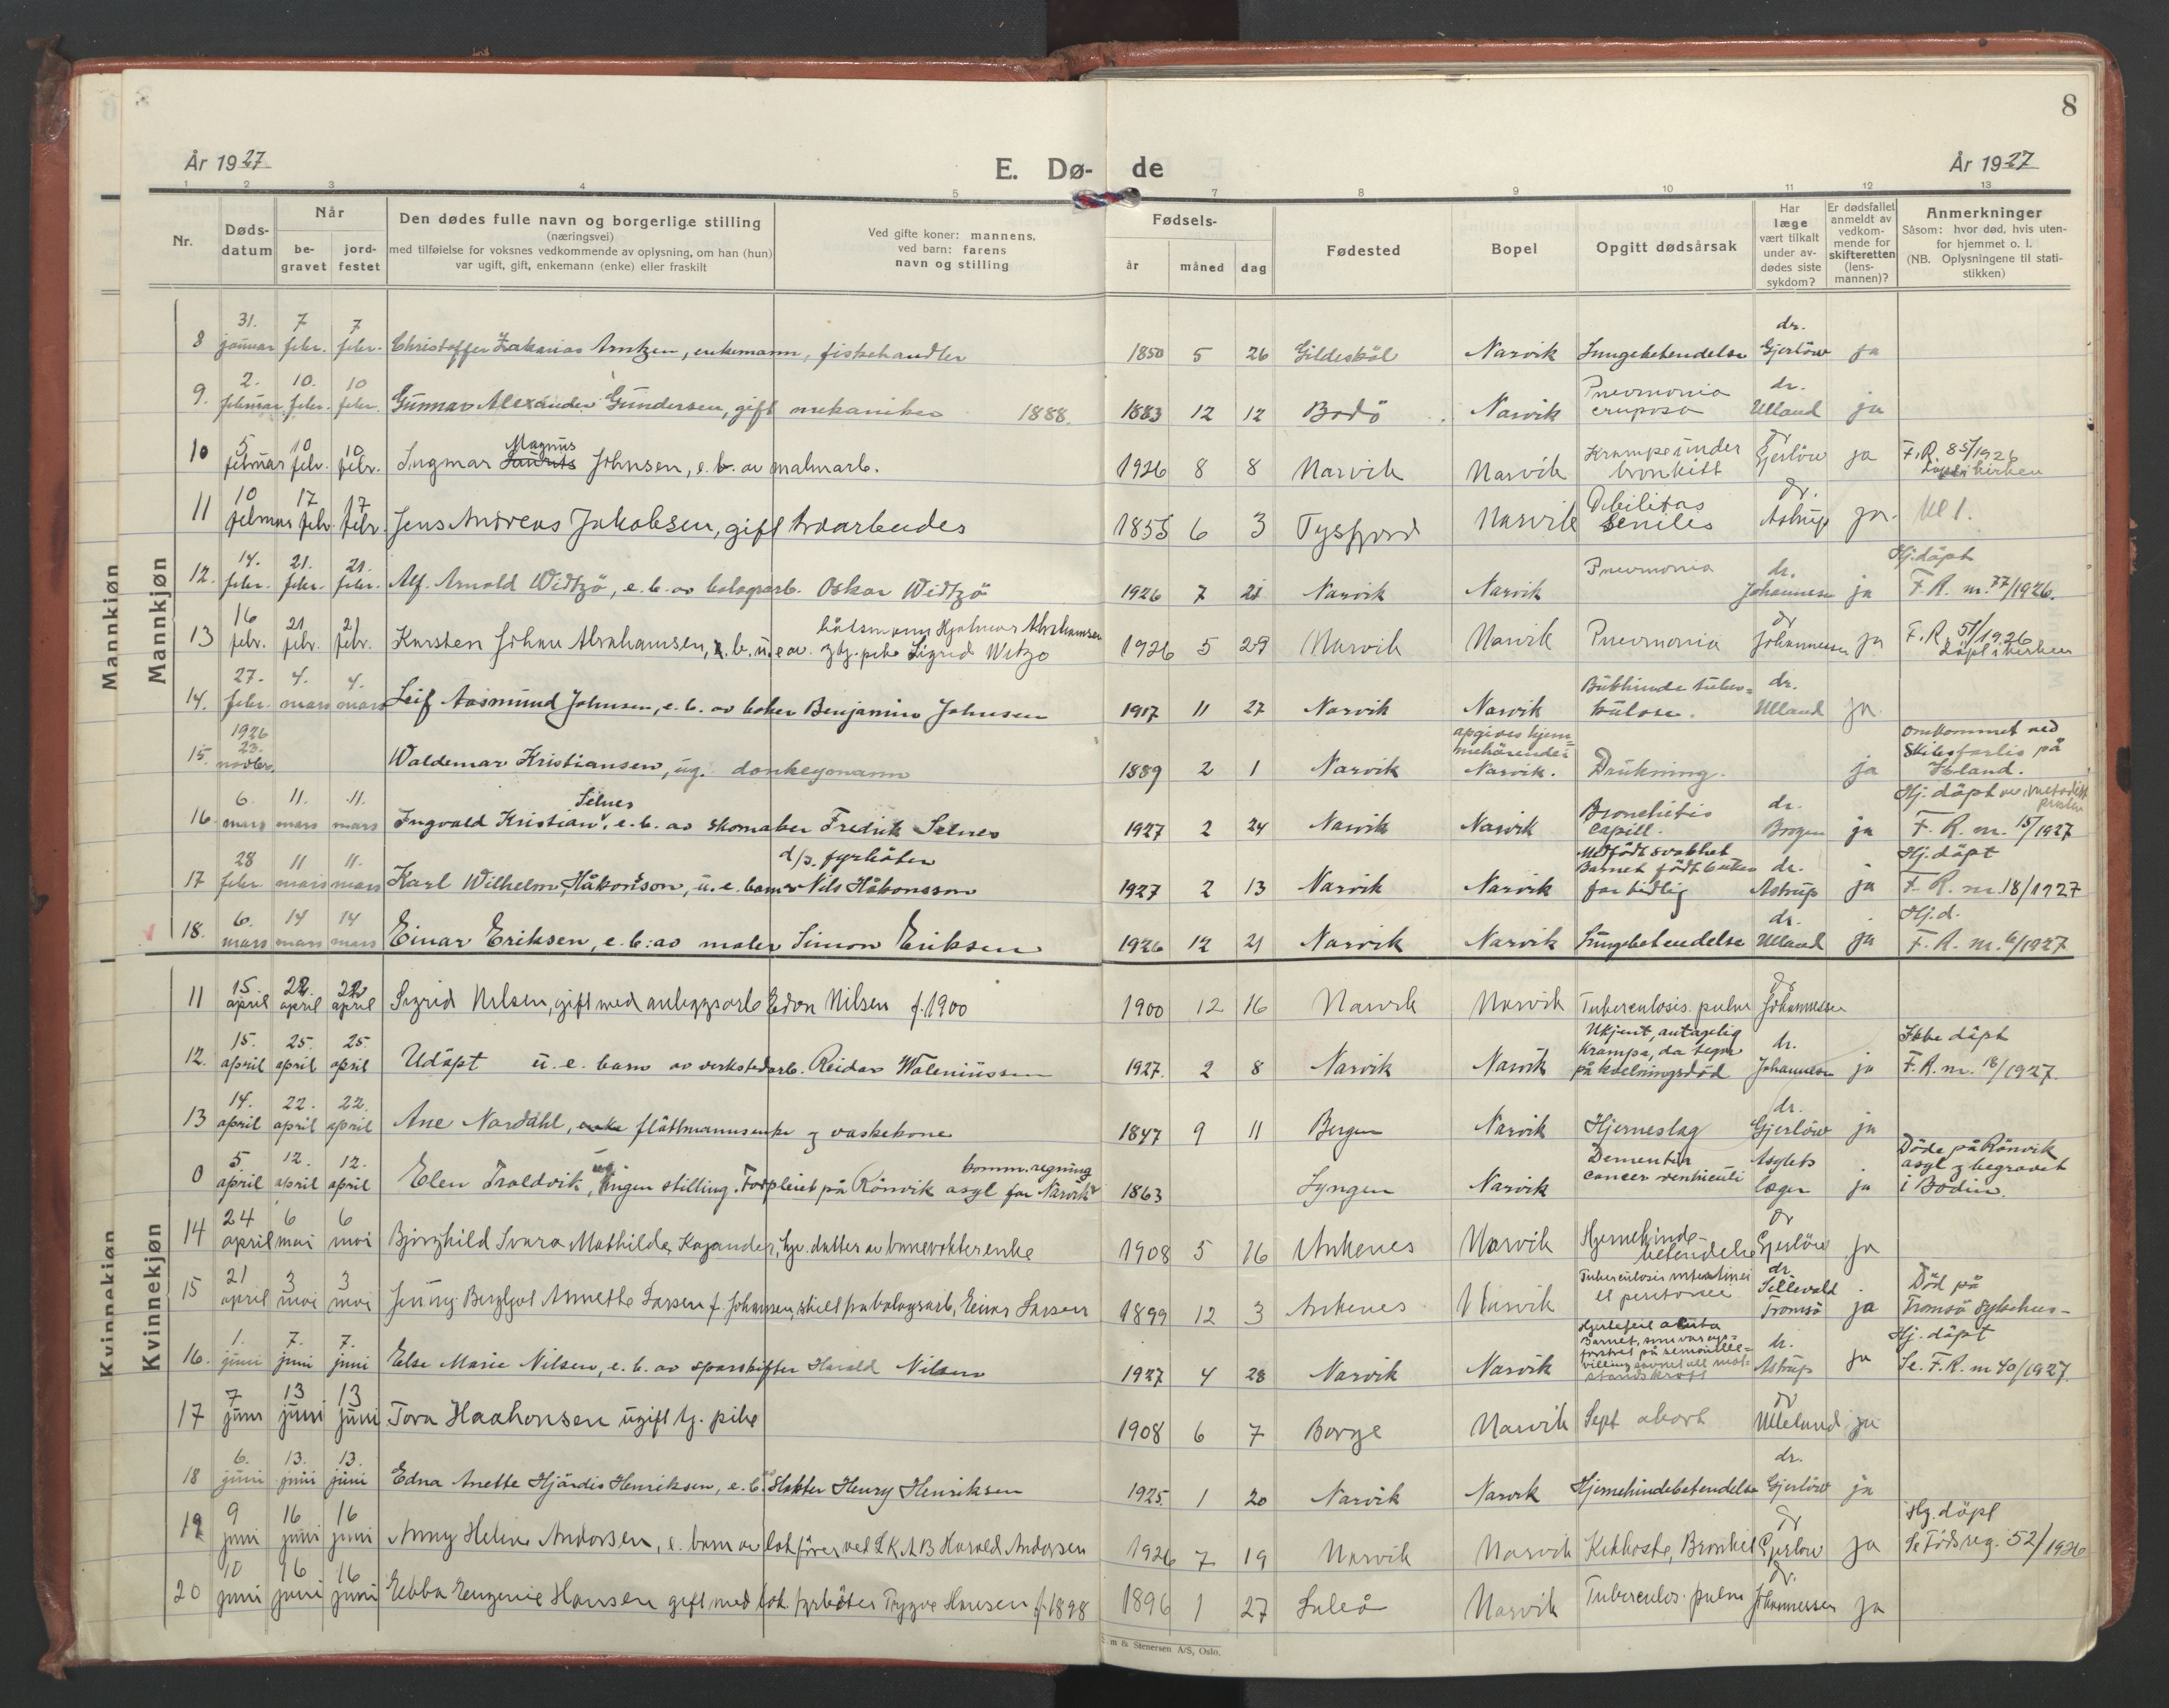 8
År 1927
E. Dø-
de
År 1927
1 2 3 4 5 7 8 9 10 11 12 13
Nr.
Døds-
datum
Når
be-
gravet
jord-
festet
Den dødes fulle navn og borgerlige stilling
(næringsvei)
med tilføielse for voksnes vedkommende av oplysning, om han (hun)
var ugift, gift, enkemann (enke) eller fraskilt
Ved gifte koner: mannens,
ved barn: farens
navn og stilling
Fødsels-
år
måned
dag
Fødested
Bopel
Opgitt dødsårsak
Har
læge
vært tilkalt
under av-
dødes siste
sykdom?
Er dødsfallet
anmeldt av
vedkom-
mende for
skifteretten
(lens-
mannen)?
Anmerkninger
Såsom: hvor død, hvis uten-
for hjemmet o. l.
(NB. Oplysningene til stati-
stikken)
Mannkjøn
Mannkjøn
31. 7 7 dr.
8 januar febr. febr. Christoffer Zakarias Arntzen, enkemann, fiskehandler 1850 5 26 Gildeskål Narvik Lungebetendelse Gjerlöw ja
2. 10. 10 Pneumonia dr.
9. februar febr. febr. Gunnar Alexander Gundersen, gift mekaniker 1888. 1883 12 12 Bodö Narvik cruposa Ulland ja
5 10 10 Magnus Krampe under dr
10 februar febr. febr. Ingmar Laurits Johnsen, e. b. av malmarb. 1926 8 8 Narvik Narvik bronkitt Gjerlöw ja F.R. 85/1926
döpt i kirken
10 17 17 Debilitas dr.
11 februar febr. febr. Jens Andreas Jakobsen, gift 1855 6 3 Tysfjord Narvik seniles Astrup ja.
14. 21. 21. Pneumonia dr. Hj. döpt
12. febr. febr. febr. Alf. Arnold Widtzö, e. b. av bolagsarb. Oskar Widtzö 1926 7 21 Narvik Narvik Johannesen ja F. R. nr. 77/1926.
16 21 21 båtsmann Hjalmar Abrahamsen dr
13 febr. febr. febr. Karsten Johan Abrahamsen, b. u.e av. og tj. pike Sigrid Witzø 1926 5 29 Narvik Narvik Pneumonia Johannessen ja F.R. 51/1926
döpt i kirken
27. 4. 4. dr.
14. febr. mars mars Leif Aasmund Johnsen, e. b. av baker Benjamin Johnsen 1917 11 27 Narvik Narvik Bukhinde tuber=
kulose. Ulland ja
1926
23. opgives hjem=
mehörende i omkommet ved
15. novbr. Waldemar Kristiansen, ug. donkeymann 1889 2 1 Narvik Narvik. Drukning. ja Skibsforlis på
6. 11. 11. Selnes Bronchitis dr. Hj. döpt av metodist
presten
16. mars mars mars Ingvald Kristian, e. b. av skomaker Fredrik Selnes 1927 2 24 Narvik Narvik capill. Borgen ja F. R. nr. 15/1927
28 11 11. d/s. fyrböter Medfödt svakhet
Barnet född 6 uker dr. Hj. döpt
17 febr. mars mars Karl Wilhelm Håkonson, u. e. barn av Nils Håkonsson 1927 2 13 Narvik Narvik for tidlig Astrup ja F. R. nr. 18/1927
6. 14 14 dr. Hj. d.
18. mars mars mars Einar Eriksen, e. b. av maler Simon Eriksen 1926 12 21 Narvik Narvik Lungebetendelse Ulland ja F. R. nr. 6/1927
Kvinnekjøn
Kvinnekjøn
15 22. 22 dr
11 april april april Sigrid Nilsen, gift med anleggsarb Edon Nilsen f. 1900 1900 12 16 Narvik Narvik Tuberculosis. pulm Johannessen
15. 25. 25. Ukjent, antagelig
krampe, da tegn dr. Ikke döpt
12. april april april Udöpt u. e. barn av verkstedarb. Reidar Waleniussen 1927. 2 8 Narvik Narvik på kvelningsdöd Johannesen ja F. R. nr. 18/1927.
14. 22. 22. dr.
13 april april april Ane Nordahl, enke flåttmannsenke og vaskekone 1847 9 11 Bergen Narvik Hjerneslag Gjerlöw ja
5 12. 12. ug komm. regning Dementia Asylets Döde på Rönvik
asyl og begravet
0 april april april Elen Troldvik, ingen stilling. Forpleiet på Rönvik asyl for Narvik 1863 Lyngen Narvik cancer ventriculi læger ja i Bodin.
24 6 6 dr
14 april mai mai Bjørghild Svara Mathilde Kajander, hjv. datter av banevokterenke 1908 5 16 Ankenes Narvik Hjernehinde-
betendelse Gjerlöw ja
21 3 3 Tuberculosis intestinei dr.
Sillevold Död på
15 april mai mai Jenny Bergljot Annette Larsen f. Johansen, skilt fra bolagsarb, Einar Larsen 1899 12 3 Ankenes Narvik et peritonei Tromsö ja Tromsö Sykehus-
1. 7. 7. Hjertefeil akuta
dr. Hj. döpt
16. juni juni juni Else Marie Nilsen, e. b. av sporskifter Harald Nilsen 1927 4 28 Narvik Narvik standskraft Astrup ja Se. F. R. nr 40/1927.
7 13 13 dr
17 juni juni juni Tora Haakonsen ugift tj. pike 1908 6 7 Borge Narvik Sept abort Ulleland ja
6. 13. 13. dr.
18 juni juni juni Edna Anette Hjördis Henriksen, e. b. av slakter Henry Henriksen 1925. 1 20 Narvik Narvik Hjernehindebetendelse Gjerlöw ja
9 16 16 dr Hj. döpt
19 juni juni juni Anny Helene Andorsen, e. barn av lok fører ved L K A B Harald Andorsen 1926 7 19 Narvik Narvik Kikhoste, Bronkit Gjerlöw ja Se Födsreg. 52/1926
10 16 16 dr.
20 juni juni juni Ebba Eugenie Hansen gift med lok. fyrböter Trygve Hansen f. 1898 1896 1 27 Luleå Narvik Tuberculos. pulm Johannessen ja
m & Stenersen A/S, Oslo.